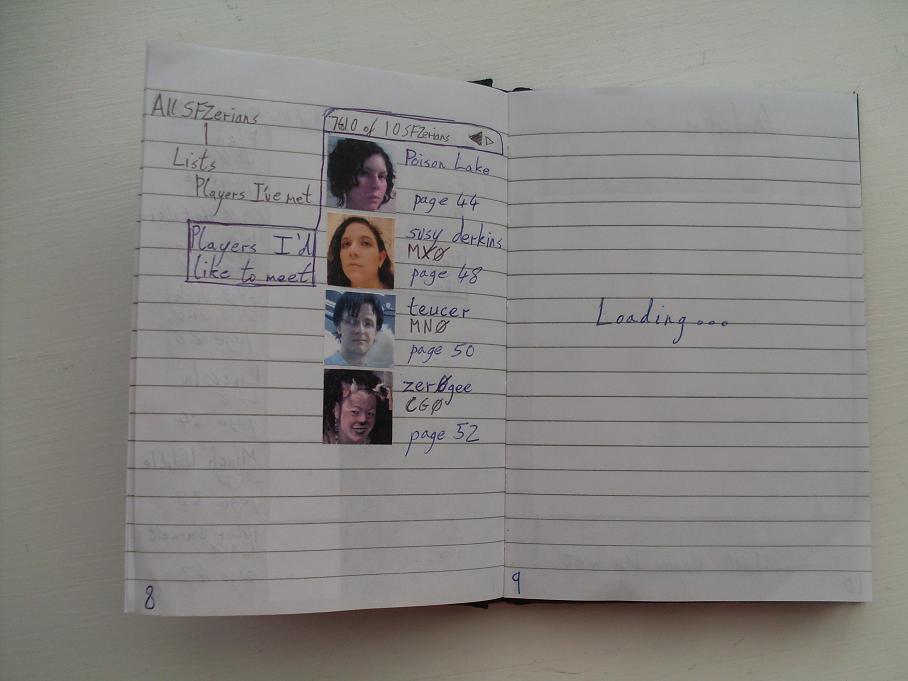 All SFZerians
Lists
Players I've met
Players I'd
like to meet
7610 of 10 SFZerians
Poison Lake
page 44
susy derkins
MXØ
page 48
teucer
MNØ
page 50
zerØgee
CGØ
page 52
8
Loading...
9